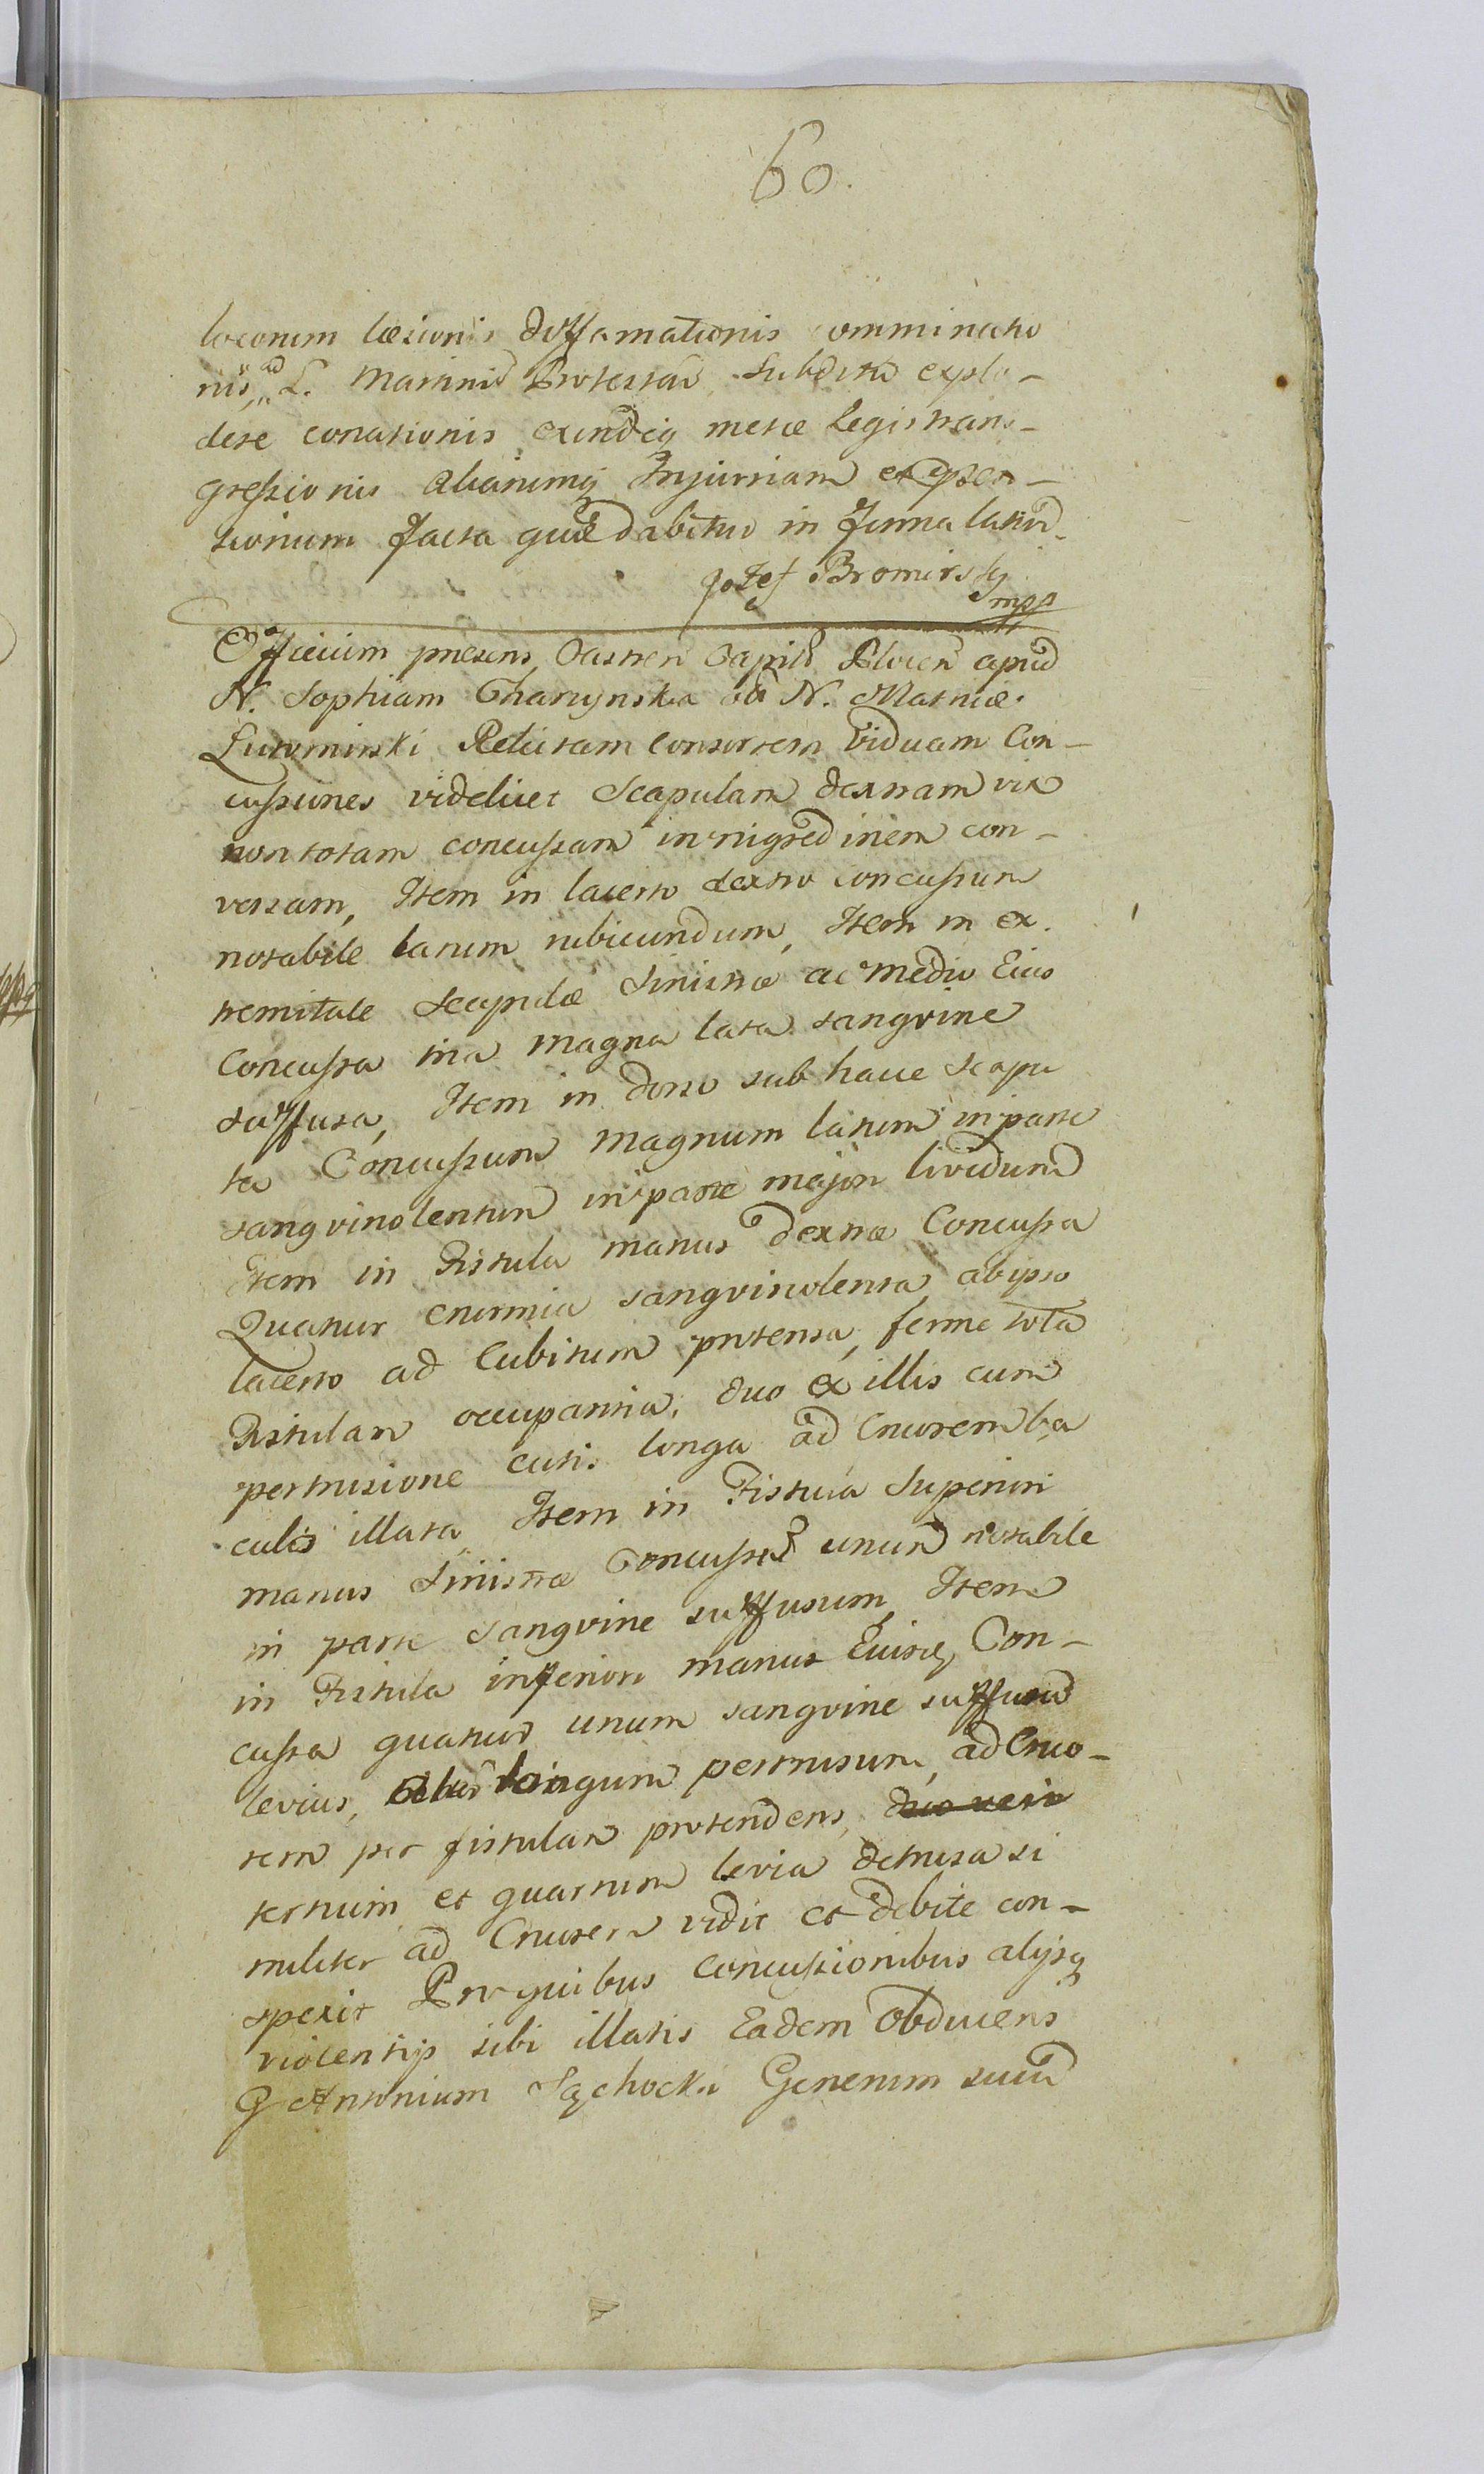 60.
locorum læsionis diffamationis comminatio
nis, ad L. Martinū Protestań Subditū explo-
dere conationis exindeq metæ Legis trans-
gressionis aliarumq Injuriam et
tionum facta quæ dabitur in forma latiori.
Jozef Bromirski mpp
Officium præsens Castreń Capitł Ploceń apud
N. Sophiam N. Mathiæ
Lutomirski Relictam Consortem Viduam Con-
cussiones videlicet Scapulam dextram vix
non totam concussam in nigredinem con-
versam, Item in lacerto dextro concussum
notabile latum rubicundum, Item in ex.
tremitate Scapulæ Sinistræ ac medio Eius
Concussa tria magna lata sangvine
suffusa, Item in dorso sub hace scapu
la Concussum magnum latum in parte
sangvinolentum in parte majori lividum
Item in Fistula manus dextræ Concussa
Quatuor enormia sangvinolenta ab ipso
lacerto ad Cubitum protensa, ferme tota
Fistulam occupantia, duo ex illis cum
pertrusione cutis longa ad Cruorem ba
culis illata, Item in Fistula Superiori
manus Sinistræ Concussū unum notabile
in parte sangvine suffusum, Item
in Fistula inferiori manus Eiusdē Con-
cussa quatuor unum sangvine suffusū
levius, longum pertrusum, ad Cruo-
rem per fistulam protendens, duo vero
tertium et quartum levia detrusa si
militer ad Cruorem vidit et debite con-
spexit Pro quibus concussionibus alijsq
violentijs sibi illatis Eadem Obducens
G Antonium Sąchocki Generum suum